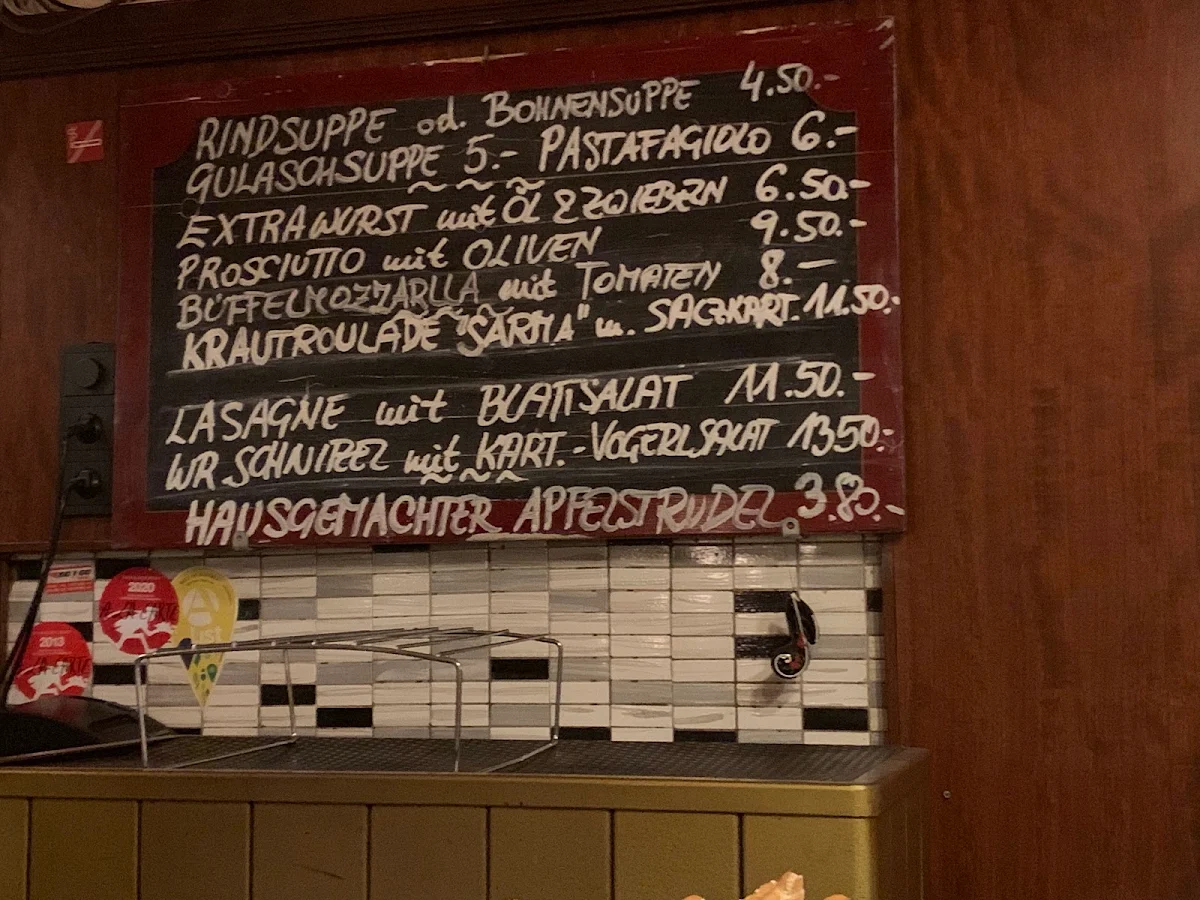 RINDSUPPE od. BOHNENSUPPE 4.50.-
GULASCHSUPPE 5.- PASTAFAGIOLO 6.-
EXTRAWURST mit ÖL & ZWIEBELN 6.50.-
PROSCIUTTO mit OLIVEN 9.50.-
BÜFFELMOZZARLLA mit TOMATEN 8.-
KRAUTROULADE "SARMA" m. SALZKART. 11.50.-
LASAGNE mit BLATTSALAT 11.50.-
WR SCHNITZEL mit KART.-VOGERLSALAT 1350.-
HAUSGEMACHTER APFELSTRUDEL 3.80.-
2020
2013